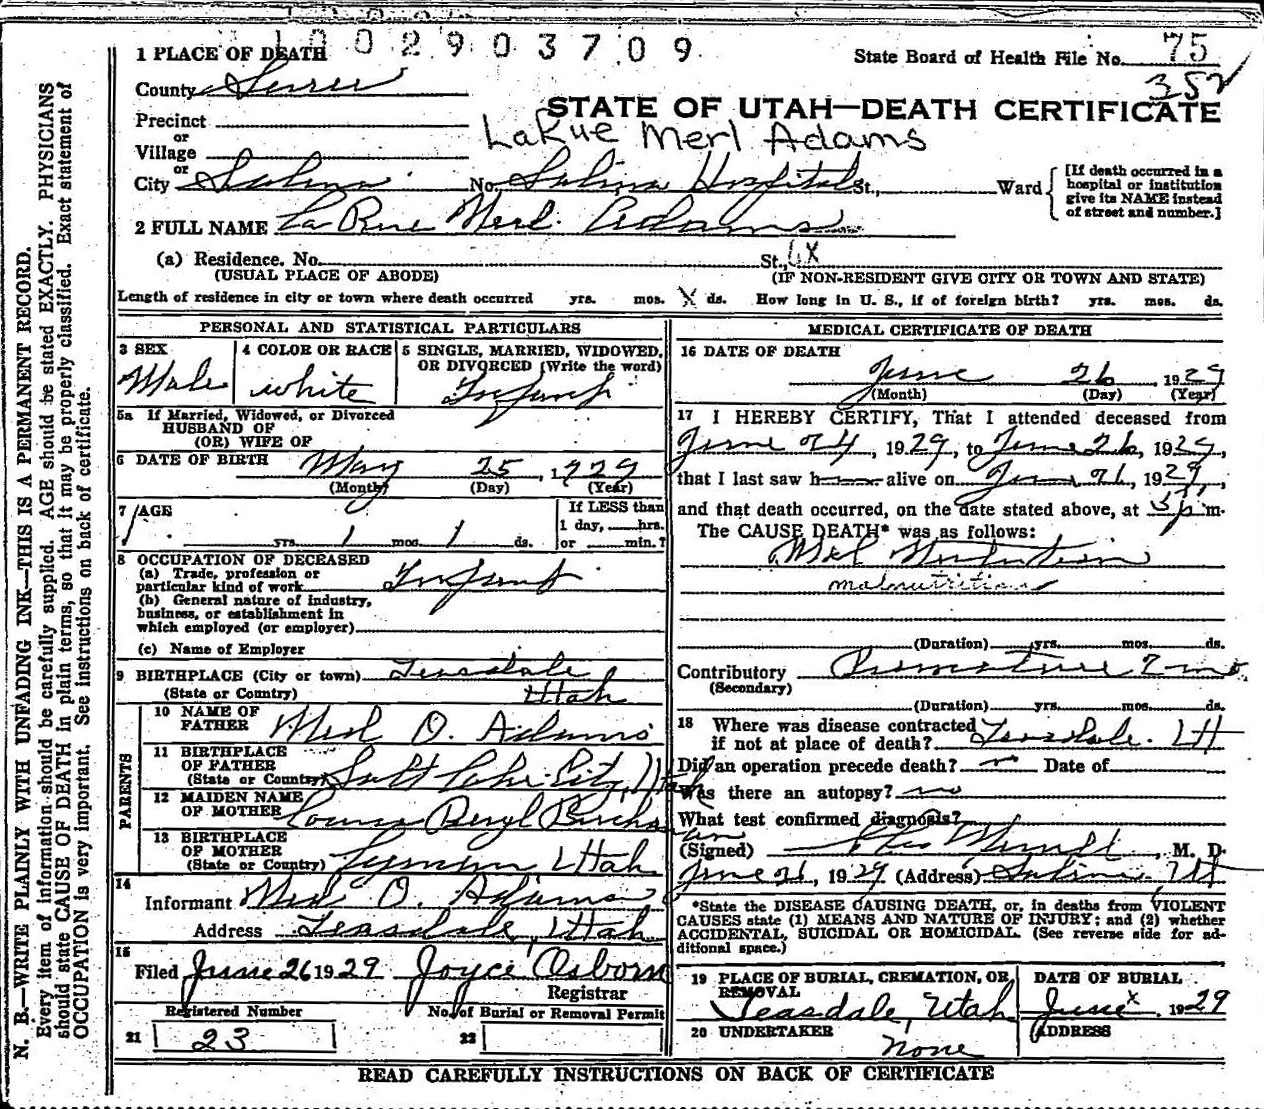 1002903709
1 PLACE OF DEATH
State Board of Health File No. 75
352
County Sevier
STATE OF UTAH—DEATH CERTIFICATE
Precinct
LaRue Merl Adams
or
Village
or
City Salina No. Salina Hospital St., Ward
[If death occurred in a hospital or institution give its NAME instead of street and number.]
2 FULL NAME La Rue Merl Adams
(a) Residence. No. St.,
(USUAL PLACE OF ABODE) (IF NON-RESIDENT GIVE CITY OR TOWN AND STATE)
Length of residence in city or town where death occurred yrs. mos. X ds. How long in U. S., if of foreign birth? yrs. mos. ds.
PERSONAL AND STATISTICAL PARTICULARS
3 SEX
Male
4 COLOR OR RACE
white
5 SINGLE, MARRIED, WIDOWED,
OR DIVORCED (Write the word)
Infant
5a If Married, Widowed, or Divorced
HUSBAND OF
(OR) WIFE OF
6 DATE OF BIRTH May 25, 1929
(Month) (Day) (Year)
7 AGE
yrs. 1 mos. 1 ds.
If LESS than
1 day, hrs.
or min.?
8 OCCUPATION OF DECEASED
(a) Trade, profession or
particular kind of work Infant
(b) General nature of industry,
business, or establishment in
which employed (or employer)
(c) Name of Employer
9 BIRTHPLACE (City or town) Teasdale
(State or Country) Utah
PARENTS
10 NAME OF
FATHER Merl O. Adams
11 BIRTHPLACE
OF FATHER
(State or Country) Salt Lake City, Utah
12 MAIDEN NAME
OF MOTHER Beryl
13 BIRTHPLACE
OF MOTHER
(State or Country) Lyman Utah
14
Informant Merl O. Adams
Address Teasdale, Utah
15
Filed June 26 1929 Joyce Osborn
Registrar
Registered Number No. of Burial or Removal Permit
21 23 22
MEDICAL CERTIFICATE OF DEATH
16 DATE OF DEATH
June 26, 1929
(Month) (Day) (Year)
17 I HEREBY CERTIFY, That I attended deceased from
June 24, 1929, to June 26, 1929,
that I last saw h alive on June 26, 1929,
and that death occurred, on the date stated above, at 5 p m.
The CAUSE DEATH* was as follows:
Mal Nutrition
malnutrition
(Duration) yrs. mos. ds.
Contributory Premature 2 mo.
(Secondary)
(Duration) yrs. mos. ds.
18 Where was disease contracted
if not at place of death? Teasdale. Ut
Did an operation precede death? Date of
Was there an autopsy? no
What test confirmed diagnosis?
(Signed) , M. D.
June 26, 1929 (Address) Salina, Ut
*State the DISEASE CAUSING DEATH, or, in deaths from VIOLENT
CAUSES state (1) MEANS AND NATURE OF INJURY; and (2) whether
ACCIDENTAL, SUICIDAL OR HOMICIDAL. (See reverse side for ad-
ditional space.)
19 PLACE OF BURIAL, CREMATION, OR
REMOVAL
Teasdale, Utah
DATE OF BURIAL
June x, 1929
20 UNDERTAKER
none
ADDRESS
READ CAREFULLY INSTRUCTIONS ON BACK OF CERTIFICATE
N. B.—WRITE PLAINLY WITH UNFADING INK—THIS IS A PERMANENT RECORD.
Every item of information should be carefully supplied. AGE should be stated EXACTLY. PHYSICIANS
should state CAUSE OF DEATH in plain terms, so that it may be properly classified. Exact statement of
OCCUPATION is very important. See instructions on back of certificate.